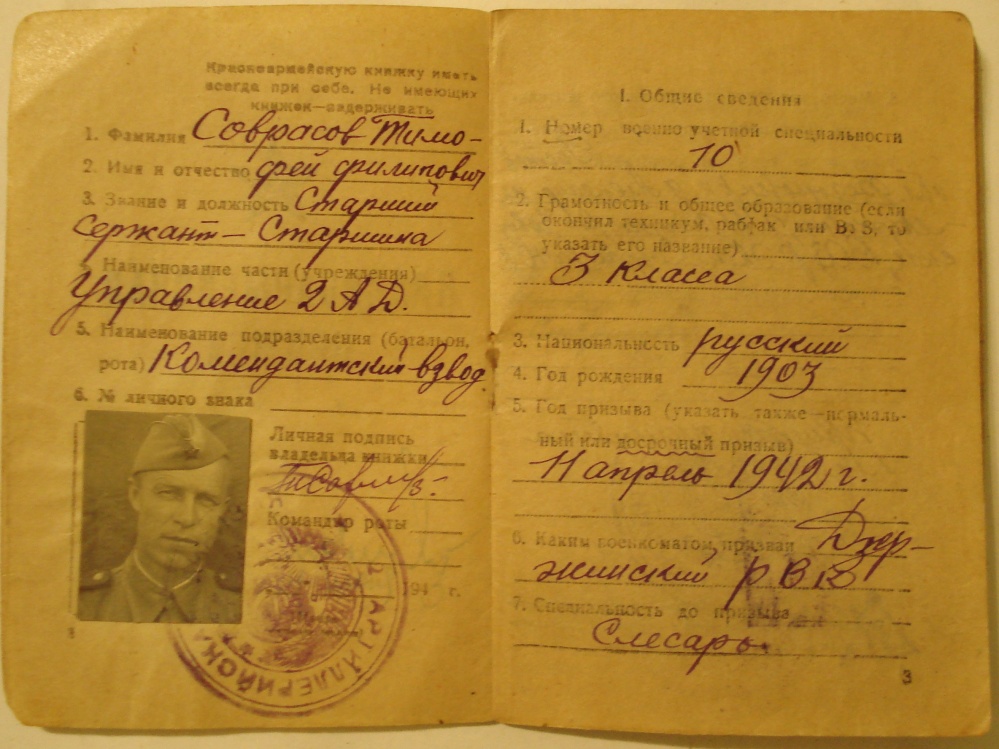 Красноармейскую книжку иметь
всегда при себе. Не имеющих
книжек—задерживать
1. Фамилия Соврасов Тимо-
2. Имя и отчество фей филипович
3. Звание и должность Старший
Сержант – Старшина
Наименование части (учреждения)
Управление 2 АД.
5. Наименование подразделения (батальон,
рота) Комендантский взвод
6. № личного знака
Личная подпись
владельца книжки
Командир роты
194 г.
АРТИЛЛЕРИЙСК
I. Общие сведения
1. Номер военно учетной специальности
10
2. Грамотность и общее образование (если
окончил техникум, рабфак или ВУЗ, то
указать его название)
3 класса
3. Национальность русский
4. Год рождения 1903
5. Год призыва (указать также—нормаль-
ный или досрочный призыв)
апрель 1942 г.
6. Каким военкоматом призван Дзер-
жинский РВК
7. Специальность до призыва
Слесарь
3